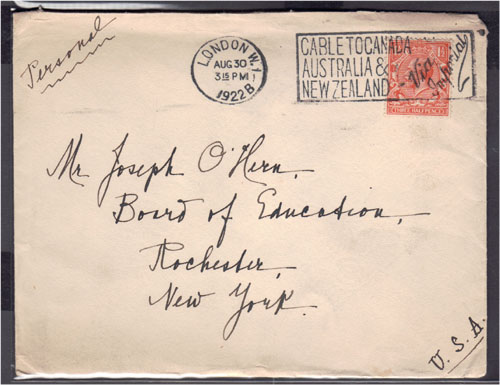 Personal
LONDON.W.1
AUG 30
3 15 PM
1922 B
CABLE TO CANADA
AUSTRALIA &
NEW ZEALAND
Via
Imperial
THREE HALFPENCE
Mr Joseph O'Hern,
Board of Education,
Rochester,
New York.
U.S.A.